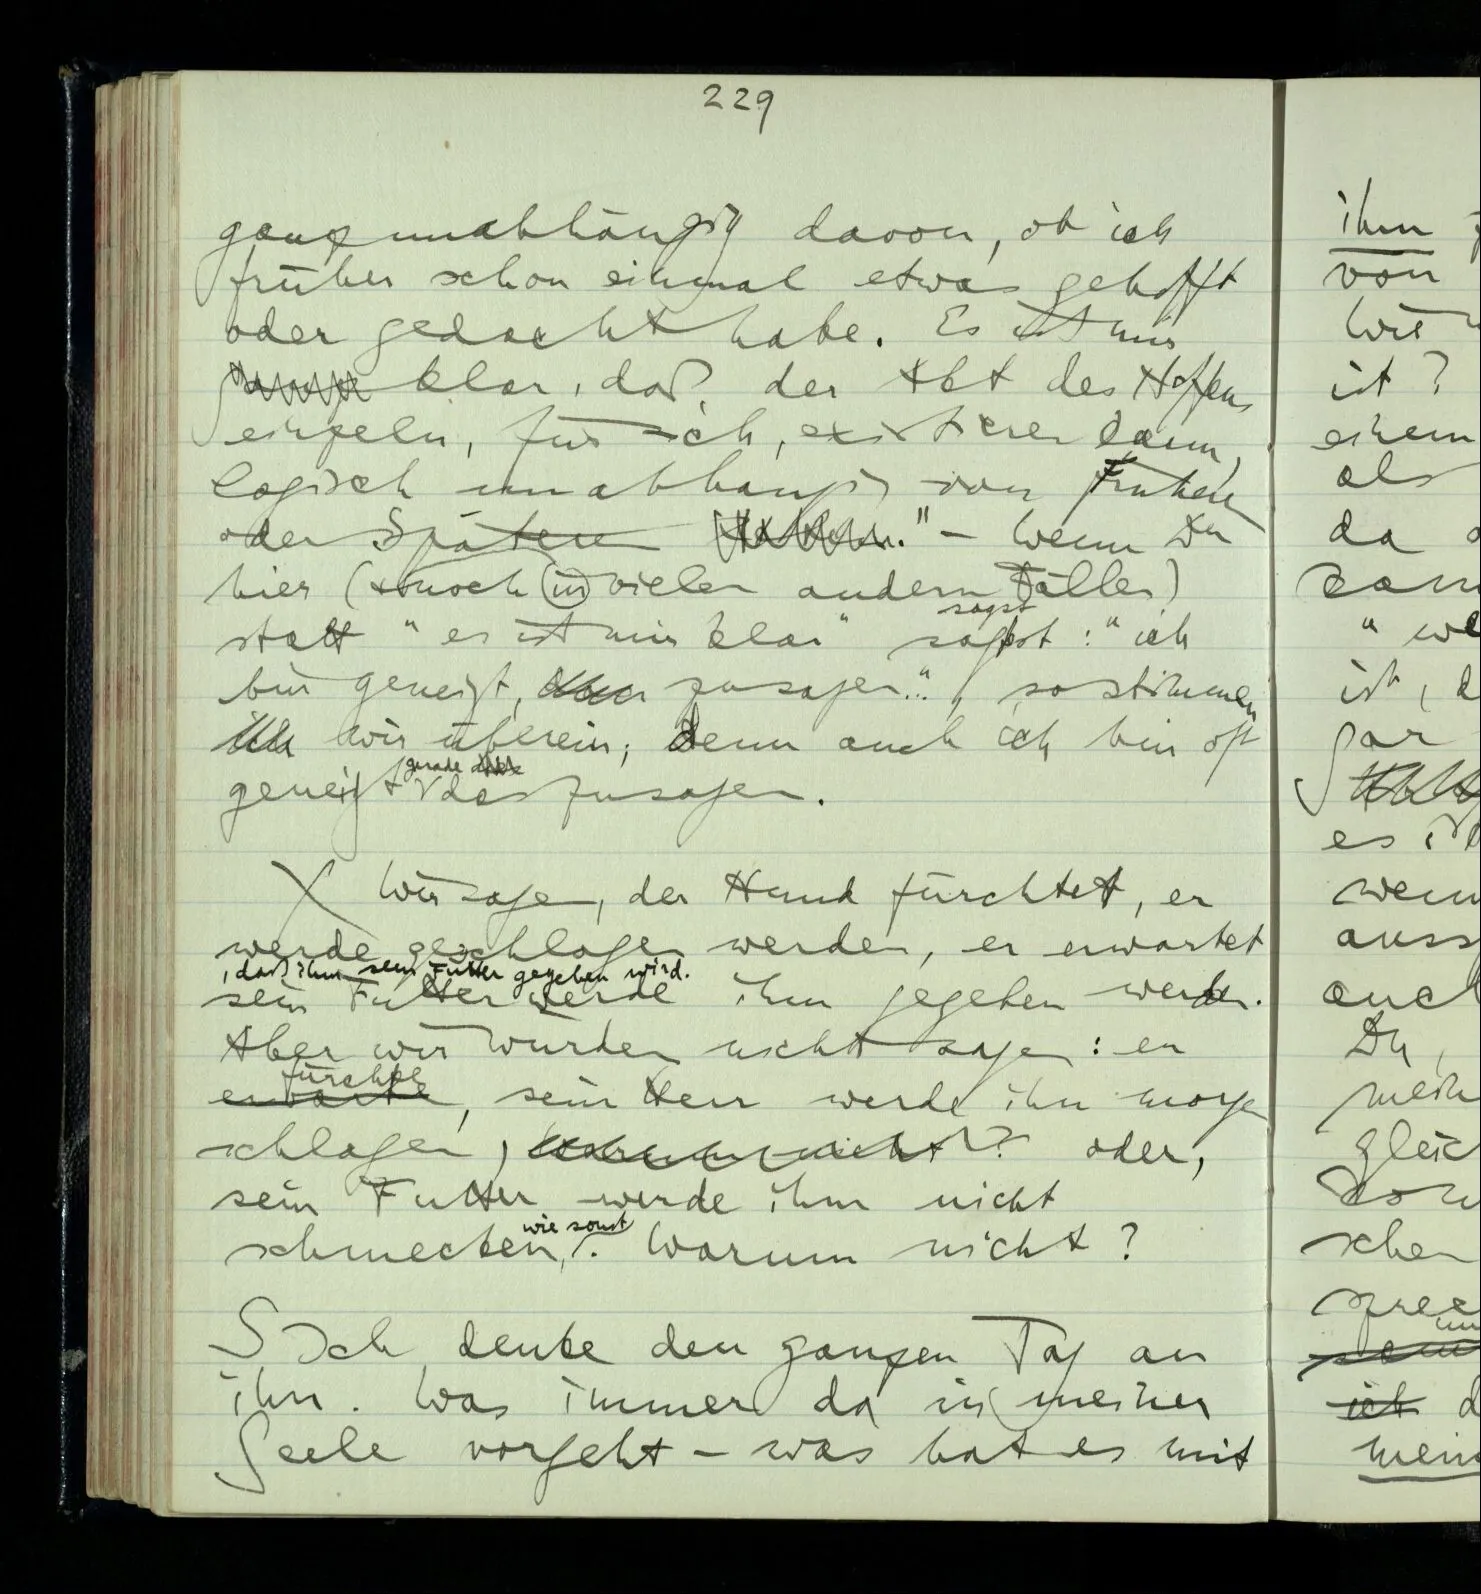 229
ganz unabhängig davon, ob ich
früher schon einmal etwas gehofft
oder gedacht habe. Es ist mir
klar, daß der Akt des Hoffens
einzeln, für sich, existieren kann,
logisch unabhängig von Früherem
oder Späterem." – Wenn Du
hier (& noch in vielen andern Fällen)
sagst
statt "es ist mir klar" sagst: "ich
bin geneigt, zu sagen..", so stimmen
wir überein; denn auch ich bin oft
gerade
geneigt das zu sagen.
Wir sagen, der Hund fürchtet, er
werde geschlagen werden, er erwartet
, daß ihm sein Futter gegeben wird.
sein Futter werde ihm gegeben werden.
Aber wir würden nicht sagen: er
fürchte
erwarte, sein Herr werde ihn morgen
schlagen, warum nicht? oder,
sein Futter werde ihm nicht
wie sonst
schmecken. Warum nicht?
S Ich denke den ganzen Tag an
ihn. Was immer da in meiner
Seele vorgeht – was hat es mit
ihm
von
wie
ist?
einem
als
da
kann
ist, d
gar
es
wenn
auss
auch
Du,
mein
gleic
schen
ist d
mein